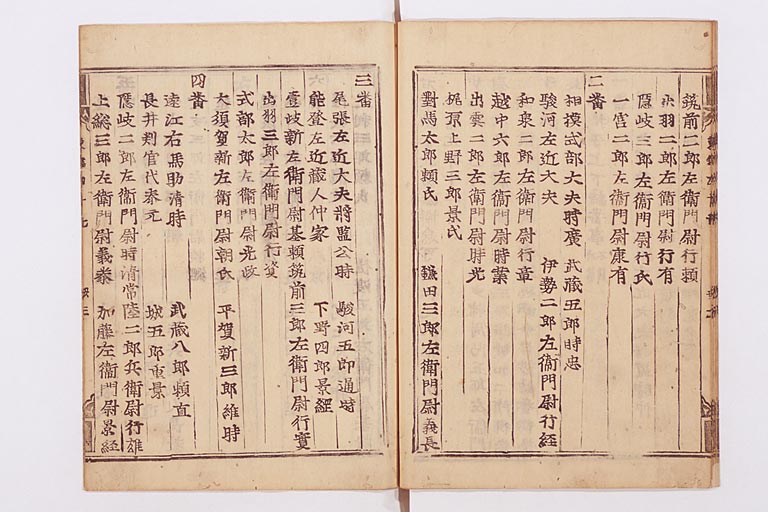 筑前二郎左衛門尉行頼
出羽二郎左衛門尉行有
隠岐三郎左衛門尉行氏
一宮二郎左衛門尉康有
二番
相摸式部大夫時廣 武蔵五郎時忠
駿河左近大夫 伊勢二郎左衛門尉行経
和泉二郎左衛門尉行章
越中六郎左衛門尉時業
出雲二郎左衛門尉時光
梶原上野三郎景氏
對馬太郎頼氏 鎌田三郎左衛門尉義長
三番
尾張左近大夫將監公時 駿河五郎通時
能登左近蔵人仲家 下野四郎景經
壹岐新左衛門尉基頼筑前三郎左衛門尉行實
出羽三郎左衛門尉行資
式部太郎左衛門尉光政
大須賀新左衛門尉朝氏 平賀新三郎維時
四番
遠江右馬助清時 武蔵八郎頼直
長井判官代泰元 城五郎重景
隠岐二郎左衛門尉時清常陸二郎兵衛尉行雄
上総三郎左衛門尉義泰 加藤左衛門尉景経